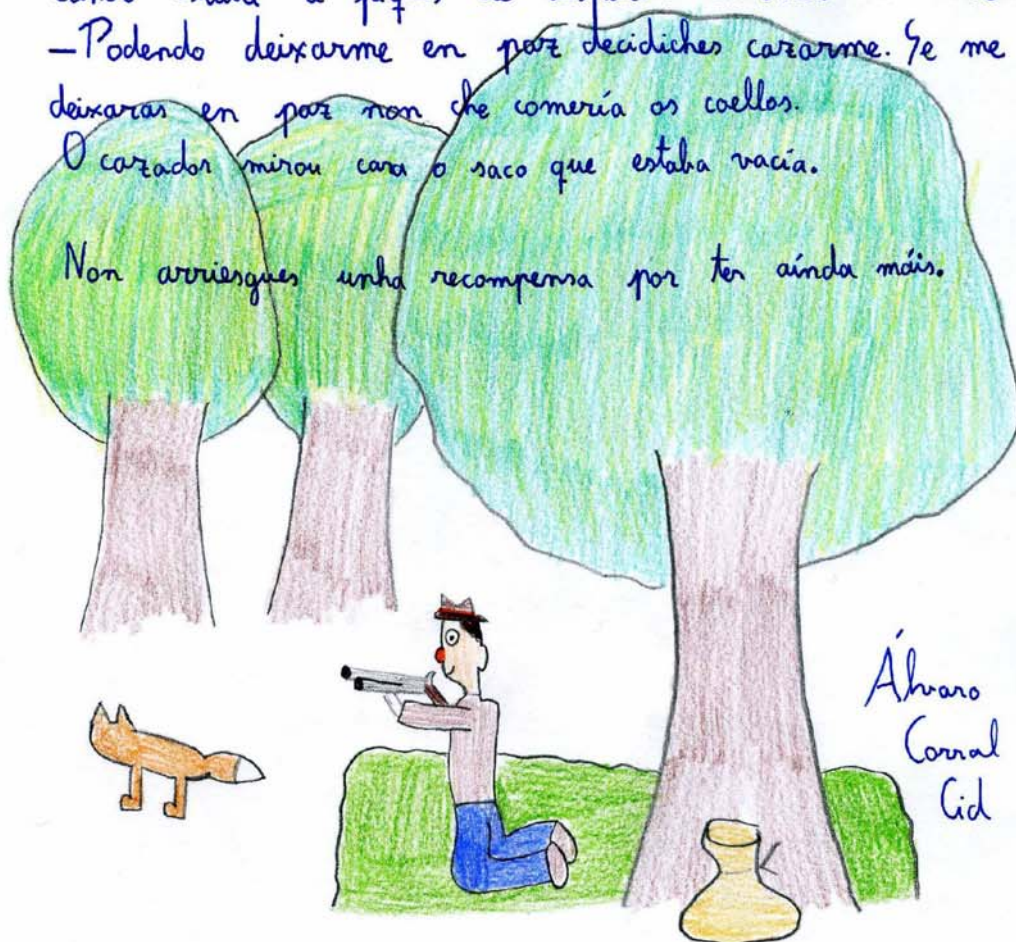 —Podendo deixarme en paz decidiches cazarme. Se me
deixaras en paz non che comería os coellos.
O cazador mirou cara o saco que estaba vacía.
Non arriesgues unha recompensa por ter aínda máis.
Álvaro
Corral
Cid